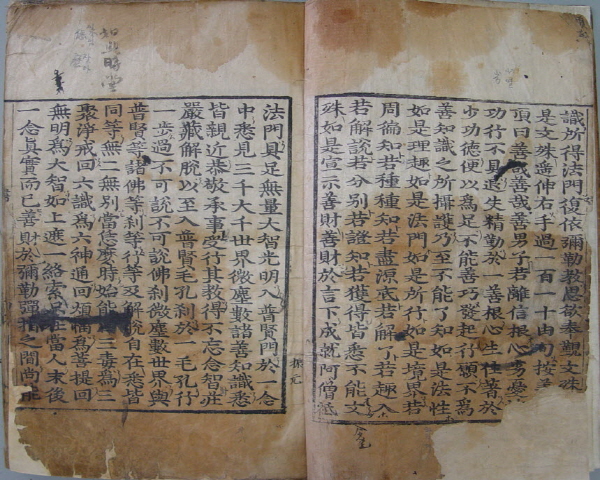 識所得法門復依彌勒教思欲奉覲文殊
是文殊遙伸右手過一百一十由旬按
頂曰善哉善哉善男子若離信根心劣憂
功行不具退失精勤於一善根心生住著於
少功德便以爲足不能善巧發起行願不爲
善知識之所攝護乃至不能了知如是法性
如是理趣如是法門如是所行如是境界若
周徧知若種種知若盡源底若解了若趣入
若解說若分別若證知若獲得皆悉不能文
殊如是宣示善財善財於言下成就阿僧祇
法門具足無量大智光明入普賢門於一念
中悉見三千大千世界微塵數諸善知識悉
皆親近恭敬承事受行其教得不忘念智莊
嚴藏解脫以至入普賢毛孔刹於一毛孔行
一步過不可說不可說佛刹微塵數世界與
普賢等諸佛等刹等行等及解脫自在悉皆
同等無二無別當恁麽時始能三毒爲三
聚淨戒回六識爲六神通回煩惱爲菩提回
無明爲大智如上遮一絡索只在當人末後
一念眞實而已善財於彌勒彈指之間尚能